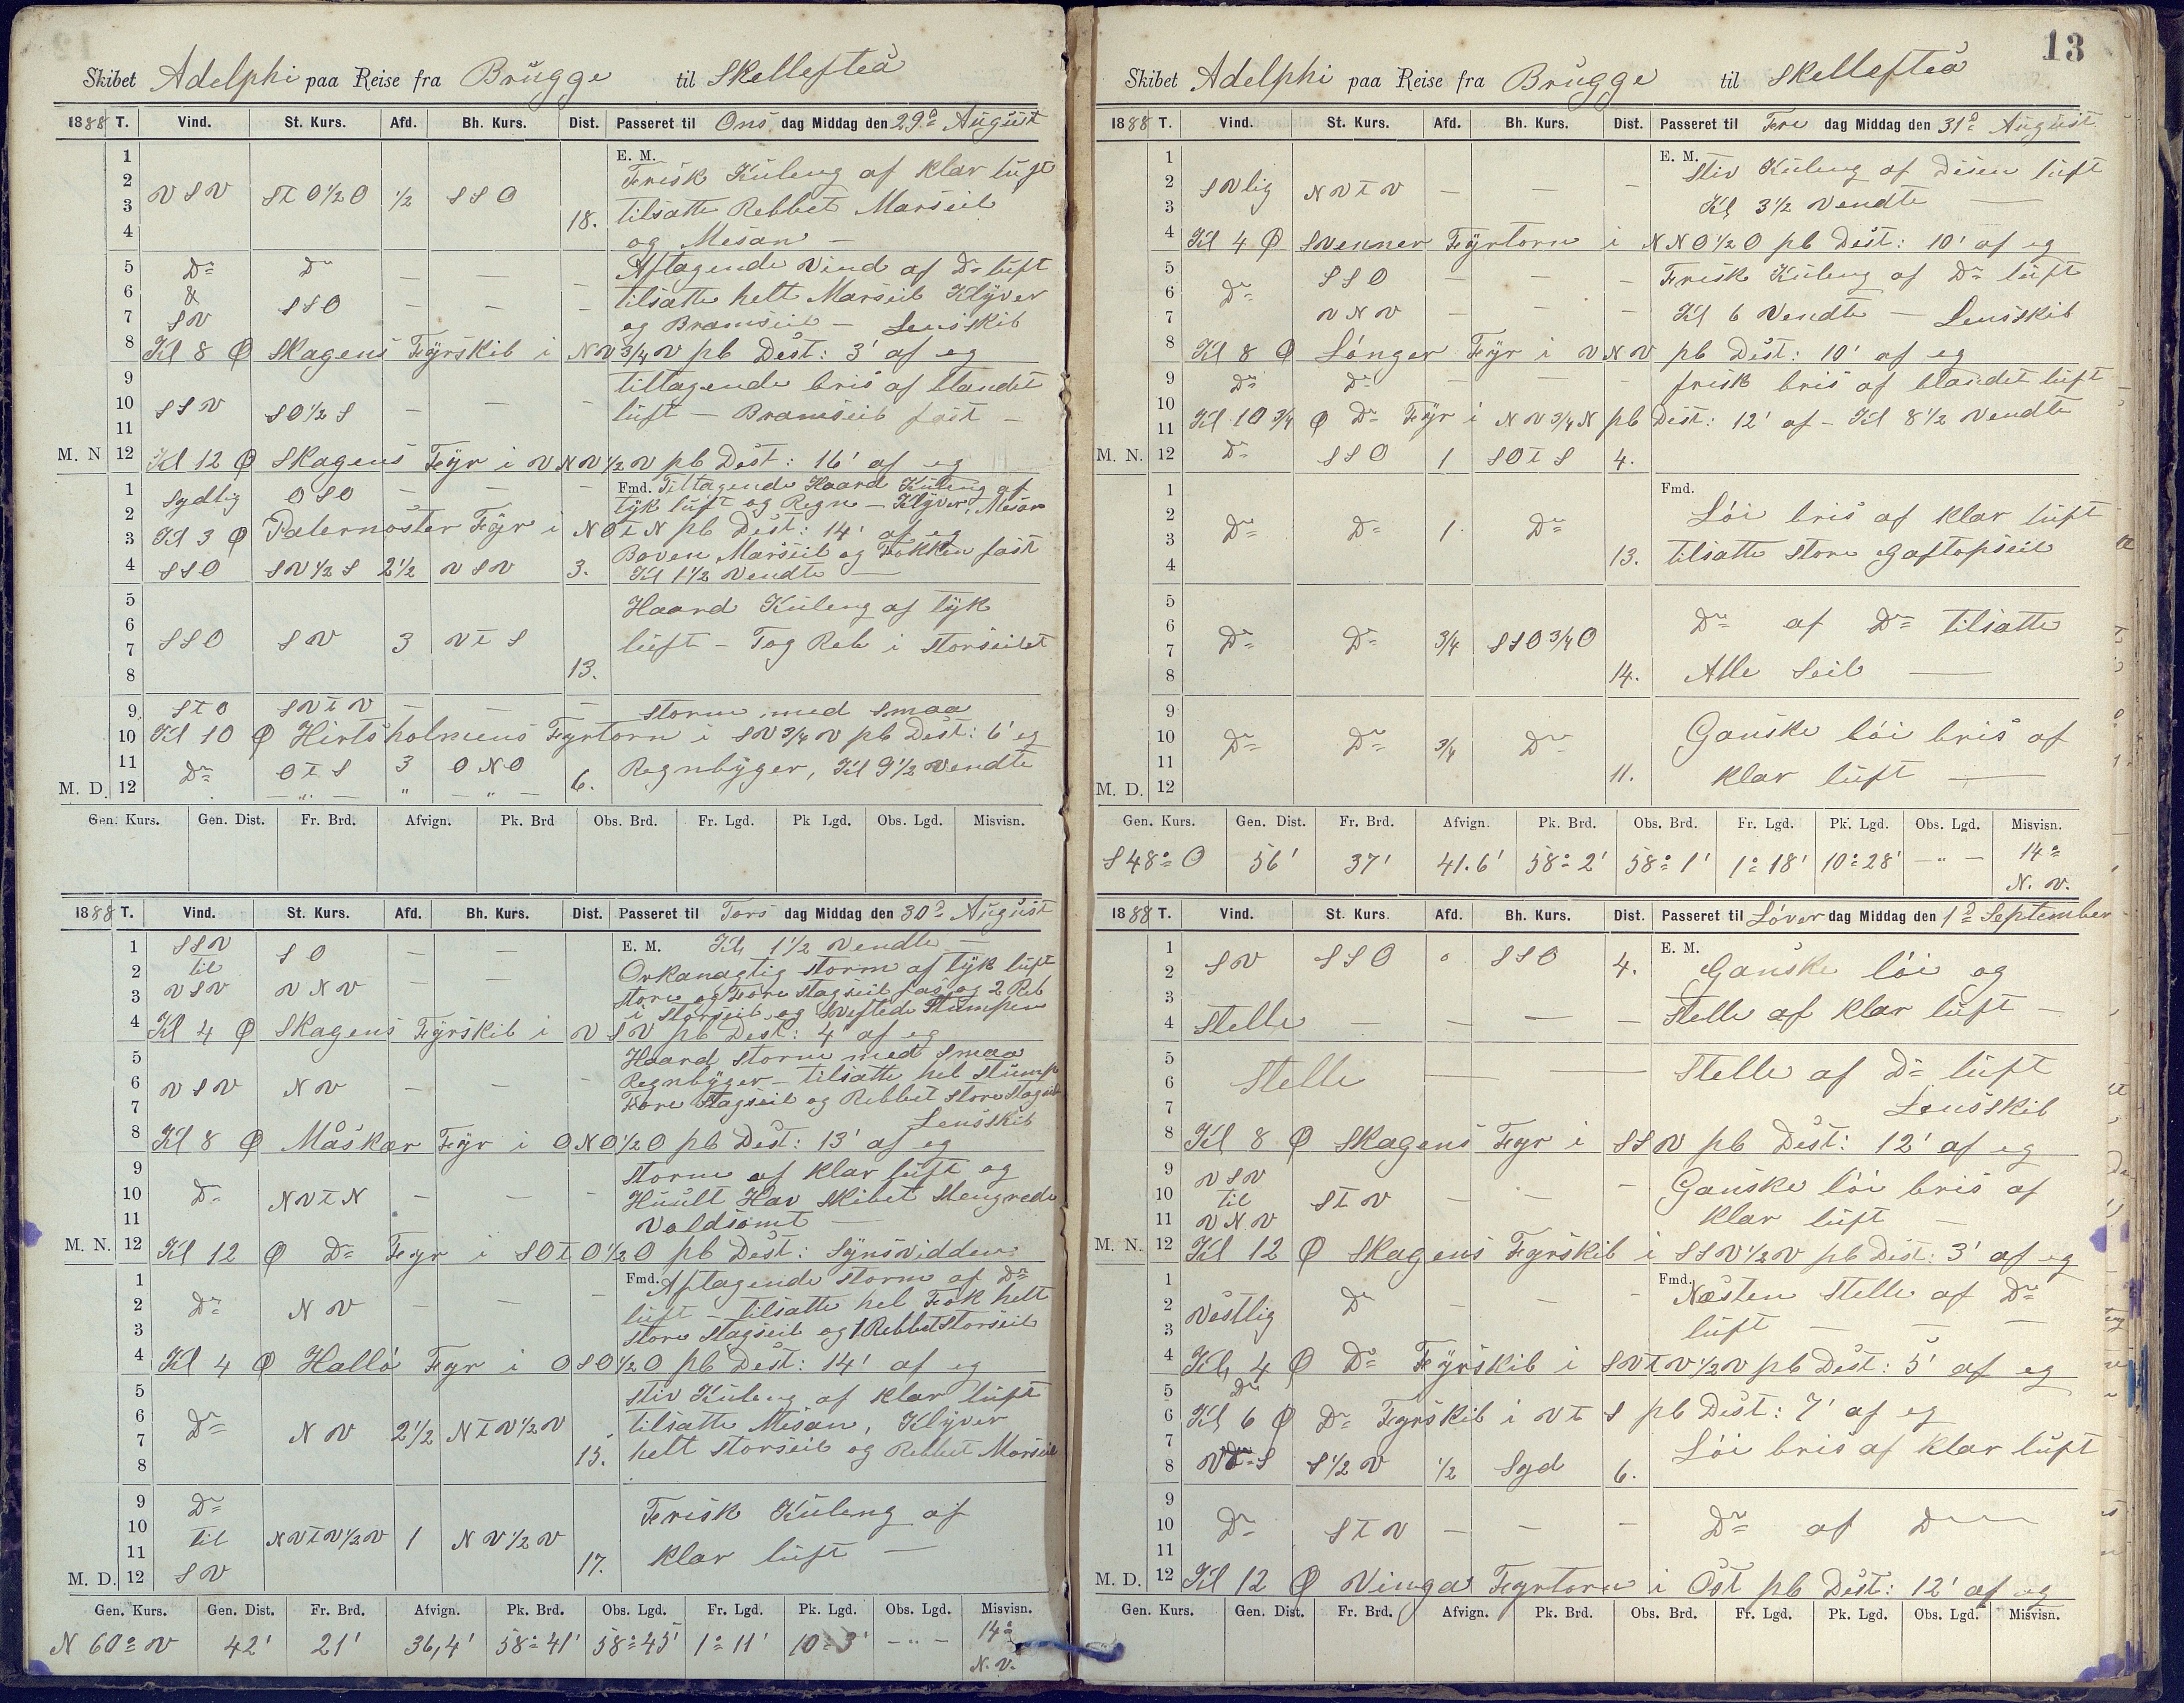 Skibet Adelphi paa Reise fra Brügge til Skellefteå
1888 T. Vind. St. Kurs. Afd. Bh. Kurs. Dist. Passeret til Ons dag Middag den 29d August
1 E. M. Frisk Küleng af klar lüft
2
VSV St O½O ½ SSO
3 18. tilsatte Rebbet Marseil
4 og Mesan —
5 Do Do — — — Aftagende Vind af Do lüft
6 & tilsatte helt Marseil Klÿver
7 SV SSO — — — og Bramseil — Lensskib
8 Kl 8 Ø Skagens Fÿrskib i NV¾V pb Dest: 3' af eg
9 tiltagende bris af blandet
10 SSV SO½S — — — lüft — Bramseil fast —
11
M. N 12 Kl 12 Ø Skagens Fÿr i VNV½V pb Dest: 16' af eg
1 Sydlig OSO — — — Fmd. Tiltagende Haard Küleng af
2 tÿk lüft og Regn — Klÿver, Mesan
3 Kl 3 Ø Paternoster Fÿr i NOtN pb Dest: 14' af eg
Boven Marseil og Fokken fast
4 SSO SV½S 2½ VSV 3. Kl 1½ Vendte —
5 Haard Küleng af tÿk
6
7 SSO SV 3 VtS lüft — Tog Reb i Storseilet
8 13.
9 StO SVtV — — — Storm med Smaa
10 Kl 10 Ø Hirtsholmens Fyrtorn i SV¾V pb Dest: 6' eg
11 Do OtS 3 ONO 6. Regnbÿger, Kl 9½ Vendte
M. D. 12 — „ — „ — „ —
Gen. Kurs. Gen. Dist. Fr. Brd. Afvign. Pk. Brd Obs. Brd. Fr. Lgd. Pk Lgd. Obs. Lgd. Misvisn.
1888 T. Vind. St. Kurs. Afd. Bh. Kurs. Dist. Passeret til Tors dag Middag den 30d August
1 SSV SO — — E. M. Kl, 1½ Vendte —
2 til Orkanagtig Storm af tÿk lüft
3 VSV VNV — — Store og Fore Stagseil fas og 2 Reb
i Storseil og Sveftede Stumpen
4 Kl 4 Ø Skagens Fÿrskib i VSV pb Dest: 4 af eg
5 Haard Storm med Smaa
6 VSV NV — — — Regnbÿger — tilsatte hel Stümp
7 Fore Stagseil og Rebbet Store Stagseil
Lensskib
8 Kl 8 Ø Måskær Fÿr i ONO½O pb Dest: 13' af eg
9 Storm af klar lüft og
10 Do NVtN — — — Huült Hav Skibet Slengrede
11 Voldsomt —
M. N. 12 Kl 12 Ø Do Fyr i SOtO½O pb Dest: Sÿnsvidden
1 Fmd. Aftagende Storm af Do
2 Do NV — — — lüft — tilsatte hel Fok helt
3 Store Stagseil og 1 Rebbet Storseil
4 Kl 4 Ø Hallö Fyr i OSO½O pb Dest: 14' af eg
5 Stiv Küleng af klar lüft
6 Do NV 2½ NtV½V tilsatte Mesan, Klÿver
7 15. helt Storseil og Rebbet Marseil
8
9 Do Frisk Küleng af
10 til NVtV½V 1 NV½V
11 17. klar lüft —
M. D. 12 SV
Gen. Kurs. Gen. Dist. Fr. Brd. Afvign. Pk. Brd. Obs. Lgd. Fr. Lgd. Pk. Lgd. Obs. Lgd. Misvisn.
N 60° V 42' 21' 36,4' 58° 41' 58° 45' 1° 11' 10° 3' — „ — 14° N. V.
13
Skibet Adelphi paa Reise fra Brügge til Skellefteå
1888 T. Vind. St. Kurs. Afd. Bh. Kurs. Dist. Passeret til Fre dag Middag den 31d August
1 E. M. Stiv Küleng af disen lüft
2 SVlig NVtV — — —
3 Kl 3½ Vendte —
4 Kl 4 Ø Svenner Fÿrtorn i NNO½O pb Dest: 10' af eg
5 SSO — — — Frisk Küleng af Do lüft
6 Do
7 VNV — — — Kl 6 Vendte — Lensskib
8 Kl 8 Ø Lánger Fÿr i VNV pb Dest: 10' af eg
9 Do Do — — — frisk bris af blandet lüft
10
11 Kl 10¾ Ø Do Fÿr i NV¾N pb Dest: 12' af — Kl 8½ Vendte
M. N. 12 Do SSO 1 SOtS 4.
1 Fmd. Löi bris af klar lüft
2 Do Do 1 Do
3 13. tilsatte Store Gaftopseil
4
5
6 Do Do ¾ SSO¾O Do af Do tilsatte
7
8 14. Alle Seil —
9
10 Do Do ¾ Do Ganske löi bris af
11 11. klar lüft —
M. D. 12
Gen. Kurs. Gen. Dist. Fr. Brd. Afvign. Pk. Brd. Obs. Brd. Fr. Lgd. Pk. Lgd. Obs. Lgd. Misvisn.
S 48° O 56' 37' 41.6' 58° 2' 58° 1' 1° 18' 10° 28' — „ — 14° N. V.
1888 T. Vind. St. Kurs. Afd. Bh. Kurs. Dist. Passeret til Löver dag Middag den 1d September
1 SV SSO o SSO 4. E. M. Ganske löi og
2
3
4 Stelle — — — — Stelle af klar lüft —
5
6 Stelle — — Stelle af Do lüft
7 Lensskib
8 Kl 8 Ø Skagens Fyr i SSV pb Dest: 12' af eg
9 VSV — Ganske löi bris af
10 til StV — —
11 VNV klar lüft —
M. N. 12 Kl 12 Ø Skagens Fyrskib i SSV½V pb Dist: 3' af eg
1 Fmd. Næsten Stelle af Do
2 Vestlig Do — — —
3 lüft — — —
4 Kl, 4 Ø Do Fÿrskib i SVtV½V pb Dest: 5' af eg
5 Do
6 Kl 6 Ø Do Fyrskib i VtS pb Dest: 7' af eg
7 Löi bris af klar lüft
8 S½V ½ Syd 6.
9
10 Do StV — — — Do af D
11
M. D. 12 Kl 12 Ø Vinga Fyrtorn i Öst pb Dest: 12' af eg
Gen. Kurs. Gen. Dist. Fr. Brd. Afvign. Pk. Brd. Obs. Brd. Fr. Lgd. Pk. Lgd. Obs. Lgd. Misvisn.